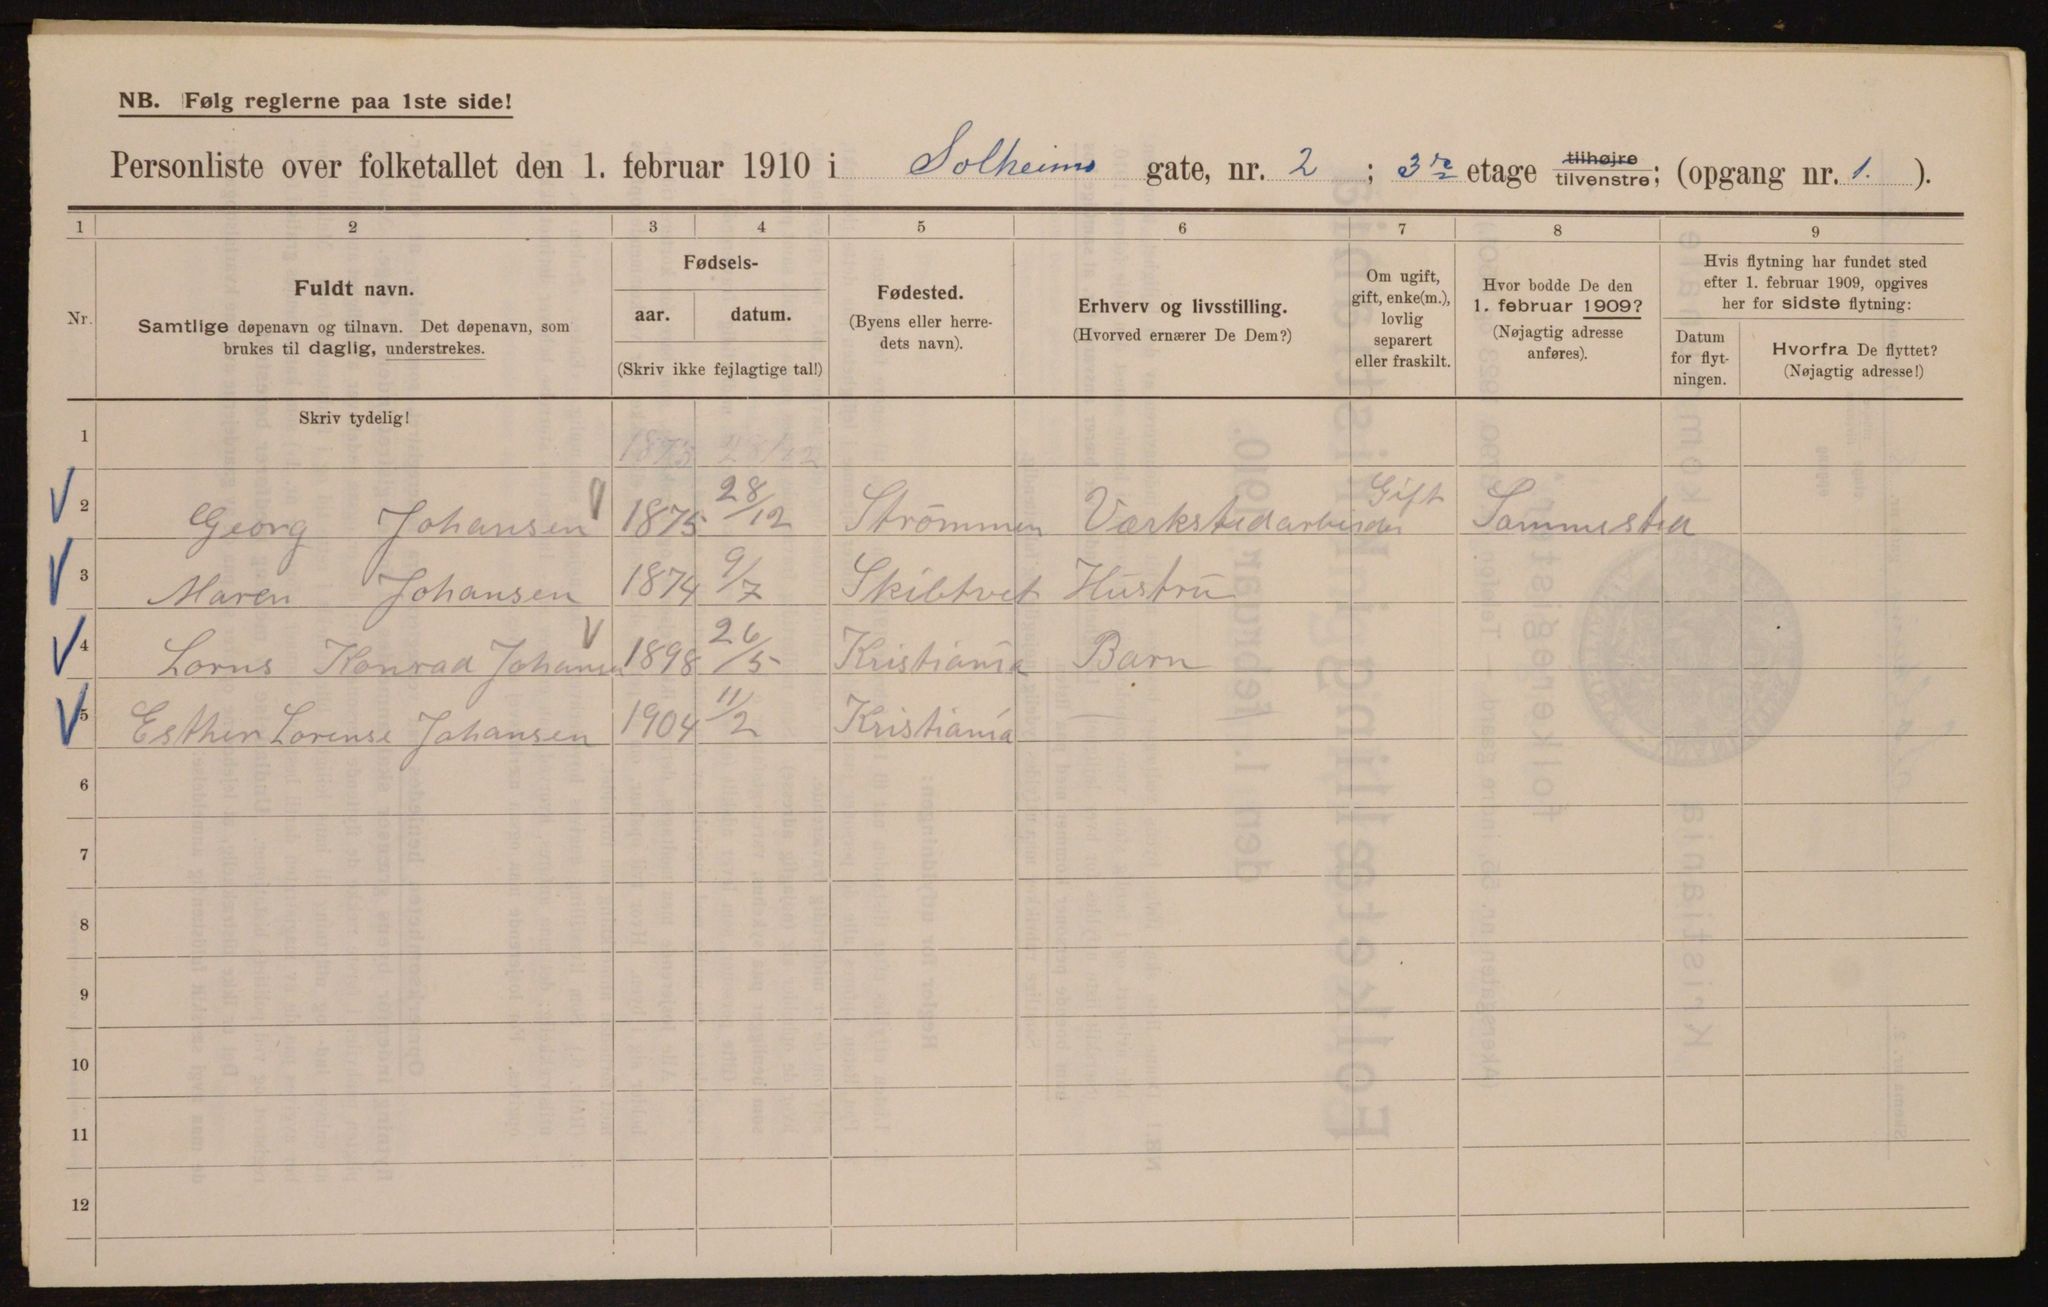 NB. Følg reglerne paa 1ste side!
Personliste over folketallet den 1. februar 1910 i Solheims gate, nr. 2 ; 3re etage tilhøjre tilvenstre; (opgang nr. 1. ).
1 2 3 4 5 6 7 8 9
Nr.
Fuldt navn.
Samtlige døpenavn og tilnavn. Det døpenavn, som
brukes til daglig, understrekes.
Fødsels-
aar. datum.
(Skriv ikke fejlagtige tal!)
Fødested.
(Byens eller herre-
dets navn).
Erhverv og livsstilling.
(Hvorved ernærer De Dem?)
Om ugift,
gift, enke(m.),
lovlig
separert
eller fraskilt.
Hvor bodde De den
1. februar 1909?
(Nøjagtig adresse
anføres).
Hvis flytning har fundet sted
efter 1. februar 1909, opgives
her for sidste flytning:
Datum
for flyt-
ningen.
Hvorfra De flyttet?
(Nøjagtig adresse!)
Skriv tydelig!
1 1875 28/12
2 Georg Johansen 1875 28/12 Strömmen Værkstedarbeider Gift Sammested
3 Maren Johansen 1874 9/7 Skibtvet Hustru
4 Lorns Konrad Johansen 1898 26/5 Kristiania Barn
5 Esther Lorense Johansen 1904 11/2 Kristiania —
6
7
8
9
10
11
12